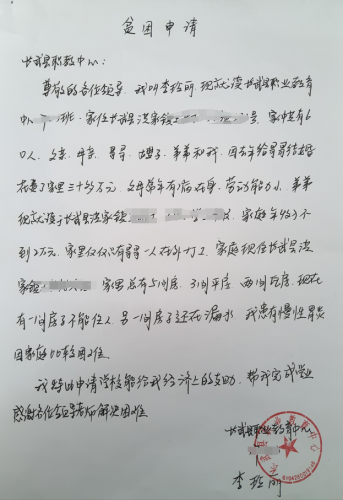 贫困申请
长武县职教中心:
尊敬的各位领导,我叫李 丽,现就读长武县职业教育
中心 班,家住长武县 家镇 号,家中有6
口人,父亲、母亲、哥哥、嫂子、弟弟和我,因去年给哥哥结婚
花费了家里三十多万元,父母常年有病在身,劳动能力小,弟弟
现就读于长武县 家镇 ,家庭年收入不
到2万元,家里仅仅只有哥哥一人在外打工,家庭现住长武县
家镇 家里总有5间房,3间平房,两间瓦房,现在
有一间房子不能住人,另一间房子还在漏水,我患有慢性胃炎
因家庭比较困难
我特此申请学校能给我经济上的支助,帮我完成学业
感谢各位领导老师解决困难
长武县职业教育中心
李 丽